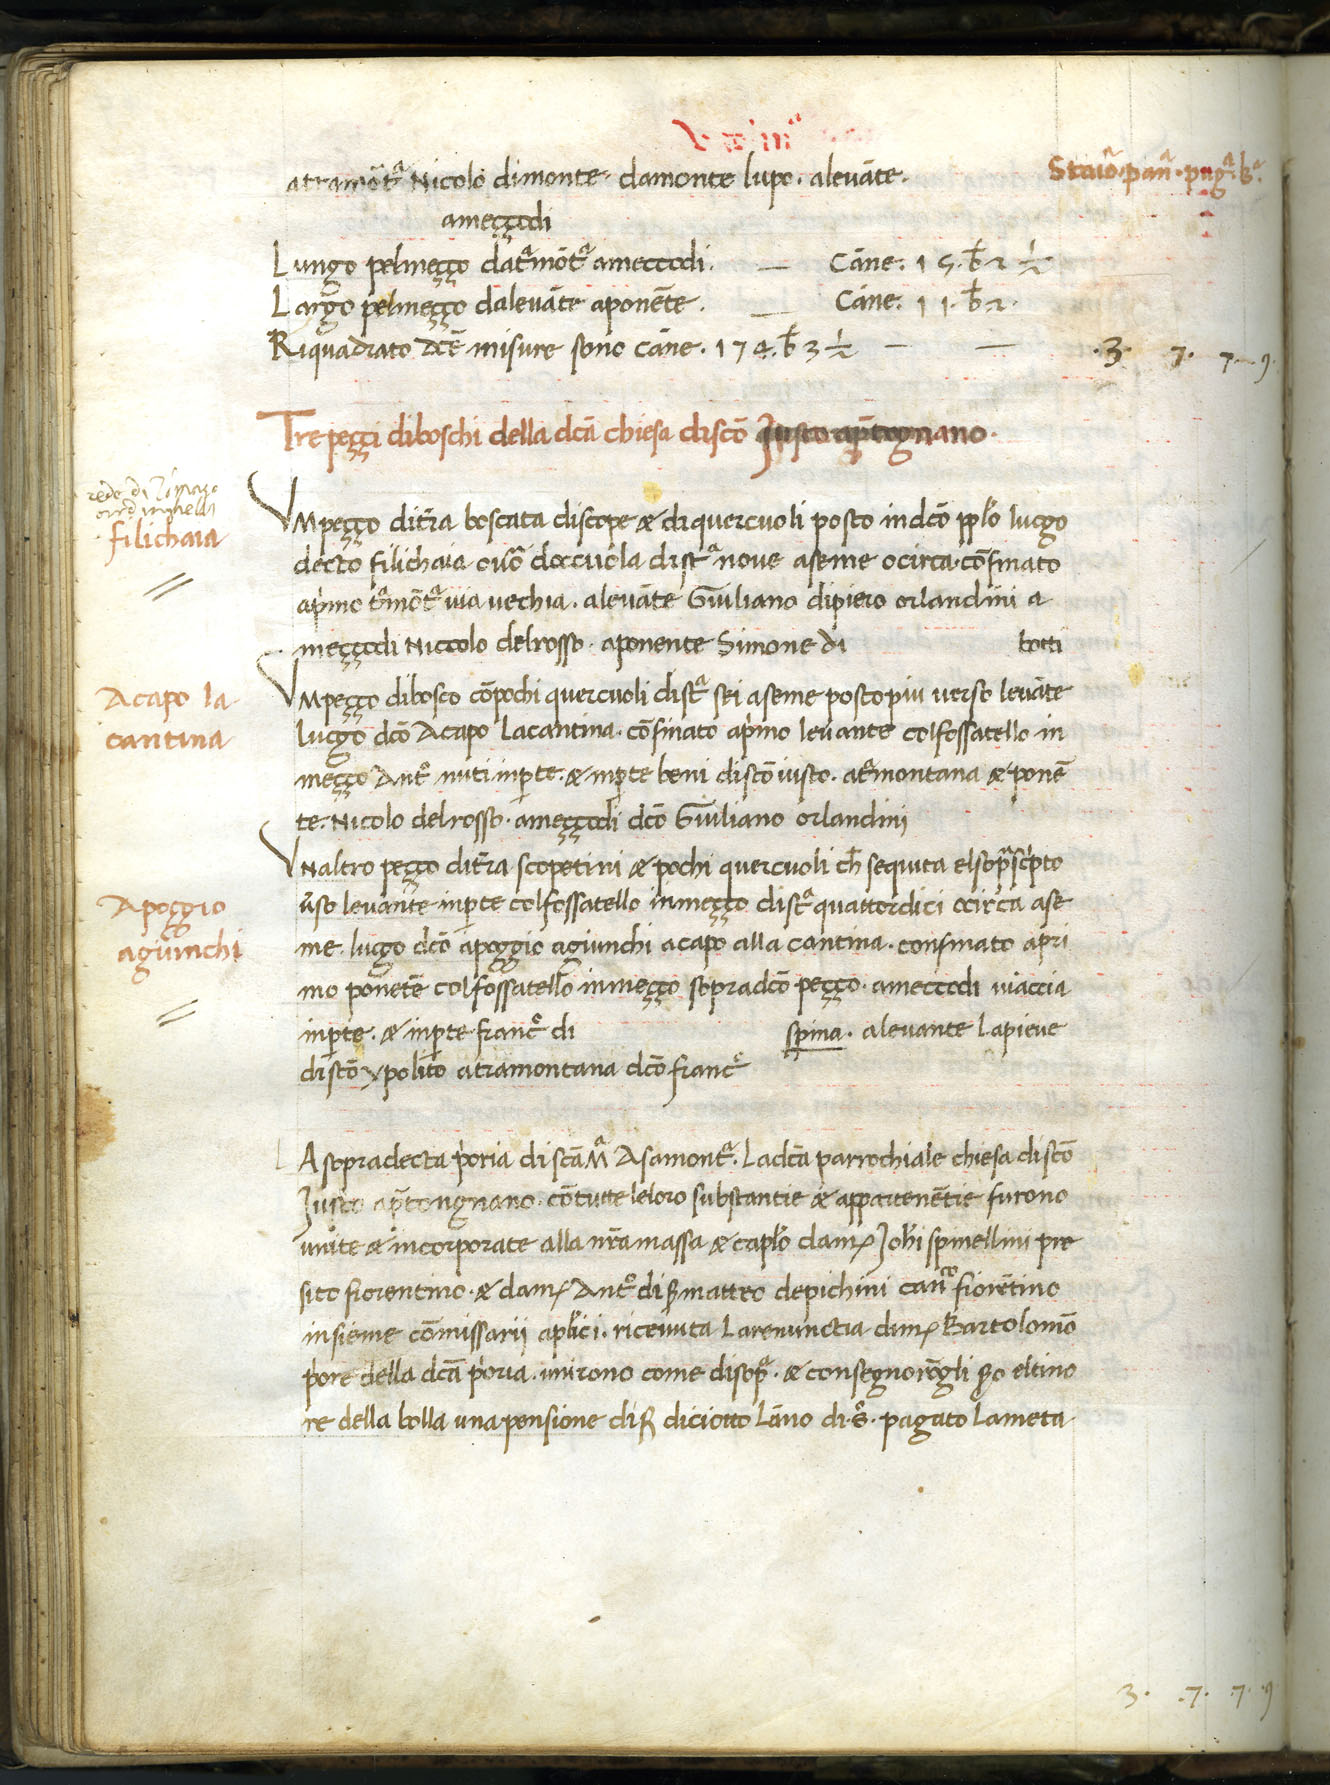 atramōtᵃ Nicolo dimonte· damonte lupo· alevāte·
Staiōᵃ·panᵃ·pugᵃ·bᵃ·
ameççodi
Lungo pelmeçço datᵃmōtᵃ ameççodi· — Cāne· 15· b̄ 2 ½
Largo pelmeçço dalevāte aponēte· — Cāne· 11· b̄ 2·
Riquadrato dcē misure sono cāne· 174· b̄ 3 ½ — — ·3· 7· 7·—9
Tre peççi diboschi della dcā chiesa discō Justo ap̄tognano·
filichaia
Vmpeçço dit̄ra boscata discope & di quercuoli posto indcō pplo luogo
decto filichaia ouō doccuola distᵃ noue aseme ocirca· cōfinato
apimo tᵃmōtᵃ uia uechia· alevāte Giuliano dipiero orlandini a
meççodi Niccolo delrosso· aponente Simone di botti
Acapo la
cantina
Vmpeçço dibosco cōpochi quercuoli distᵃ sei aseme posto piu uerso levāte
luogo dcō Acapo lacantina· cōfinato apimo leuante colfossatello in
meçço Antᵒ nuti inp̄te· & inp̄te beni discō iusto· atᵃmontana & ponē
te· Nicolo delrosso· ameççodi dcō Giuliano orlandini
Vnaltro peçço dit̄ra scopetini & pochi quercuoli ch̄ sequita elsopᵃscipto
ūso leuante inp̄te colfossatello inmeçço distᵃ quattordici ocirca ase
Apoggio
agiunchi
me· luogo dcō apoggio agiunchi acapo alla cantina· confinato apri
mo ponētē colfossatello inmeçço sopradcō peçço· ameççodi uiaccia
inp̄te· & inp̄te francᵒ di spina· alevante Lapieue
discō ypolito atramontana dcō francᵒ
LA sopradecta p̄oria di scā Mᵃ Asamontᵃ· Ladcā parrochiale chiesa discō
Justo ap̄tongnano· cōtutte leloro substantie & appartenētie furono
unite & incorporate alla nr̄a massa & caplo dam̄ Johi spinellini pre
sito fiorentino· & dam̄ Antᵒ di s̄ matteo depichini canᶜᵒ fiorētino
insieme cōmissarii aplici· riceuuta Larenunctia dim̄ Bartolomō
p̄ore della dcā p̄oria· unirono come disopᵃ· & consegnorōgli p̱o eltino
re della bolla una pensione dif̄ diciotto lāno di·s̄· pagato Lameta
3· ·7· ·7· ·9